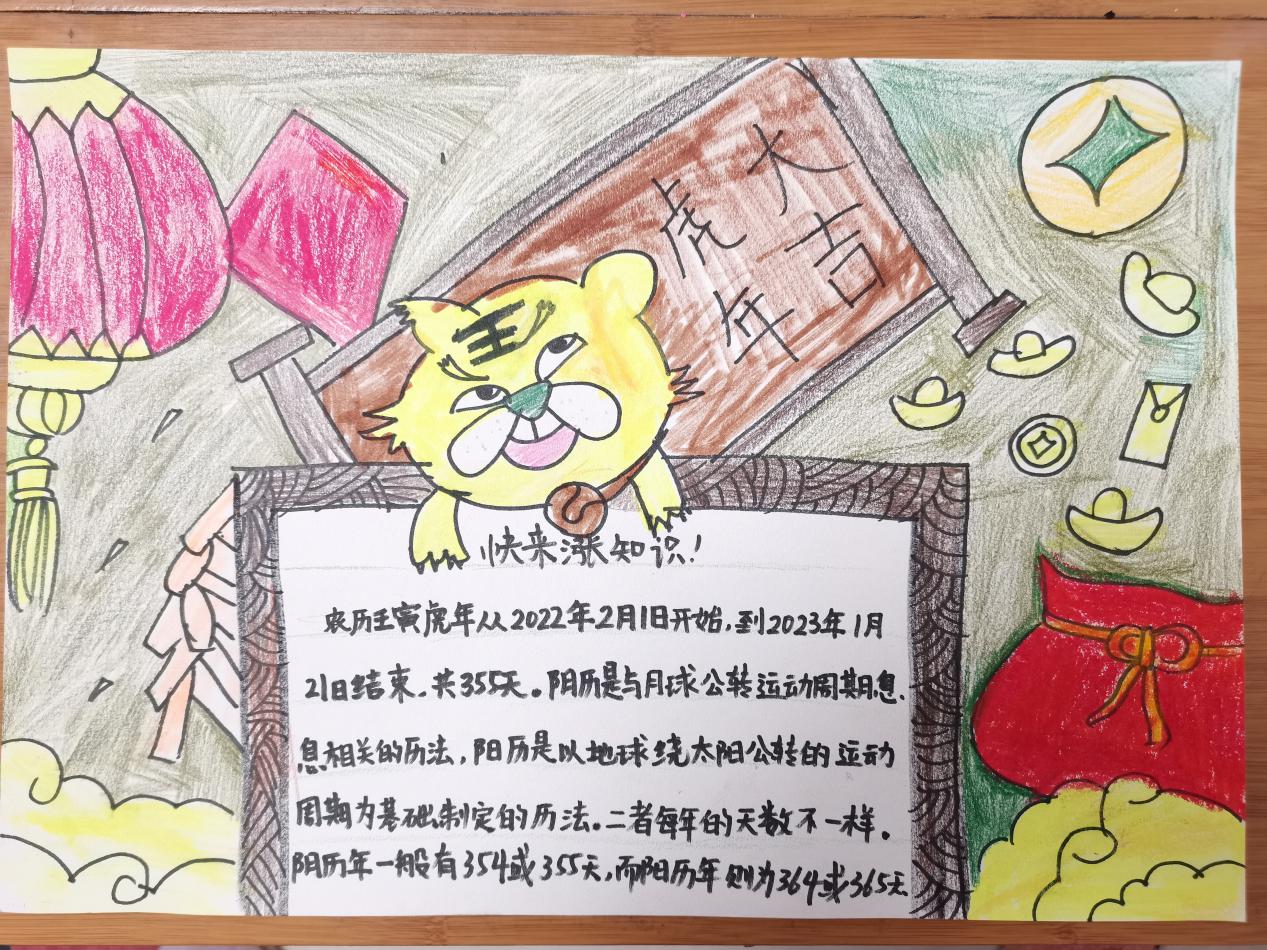 虎年
大吉
王
快来涨知识!
农历壬寅虎年从2022年2月1日开始,到2023年1月
21日结束.共355天。阴历是与月球公转运动周期息
息相关的历法,阳历是以地球绕太阳公转的运动
周期为基础制定的历法。二者每年的天数不一样。
阴历年一般有354或355天,而阳历年则为364或365天